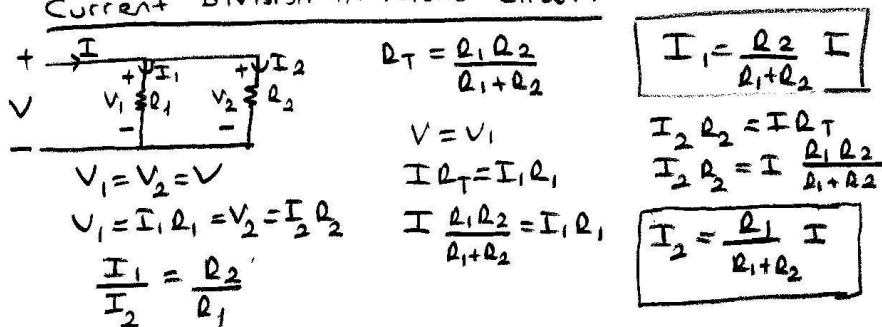 Current Division
+ I I₁ + I₂
V + V₁ R₁ V₂ R₂
− − −
V₁ = V₂ = V
V₁ = I₁R₁ = V₂ = I₂R₂
I₁/I₂ = R₂/R₁
R_T = R₁R₂/(R₁+R₂)
V = V₁
IR_T = I₁R₁
I R₁R₂/(R₁+R₂) = I₁R₁
I₁ = R₂/(R₁+R₂) I
I₂R₂ = IR_T
I₂R₂ = I R₁R₂/(R₁+R₂)
I₂ = R₁/(R₁+R₂) I